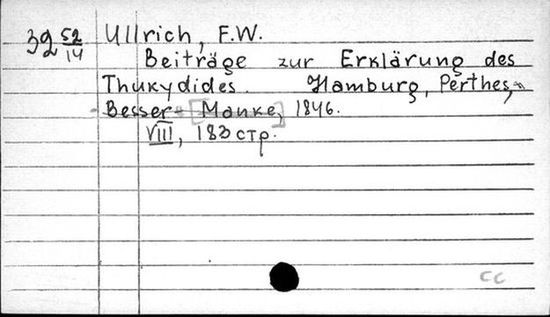 39 52/14 Ullrich, F.W.
Beiträge zur Erklärung des
Thukydides. Hamburg, Perthes,-
-Besser- [Manke], 1846.
VIII, 183 стр.
CC